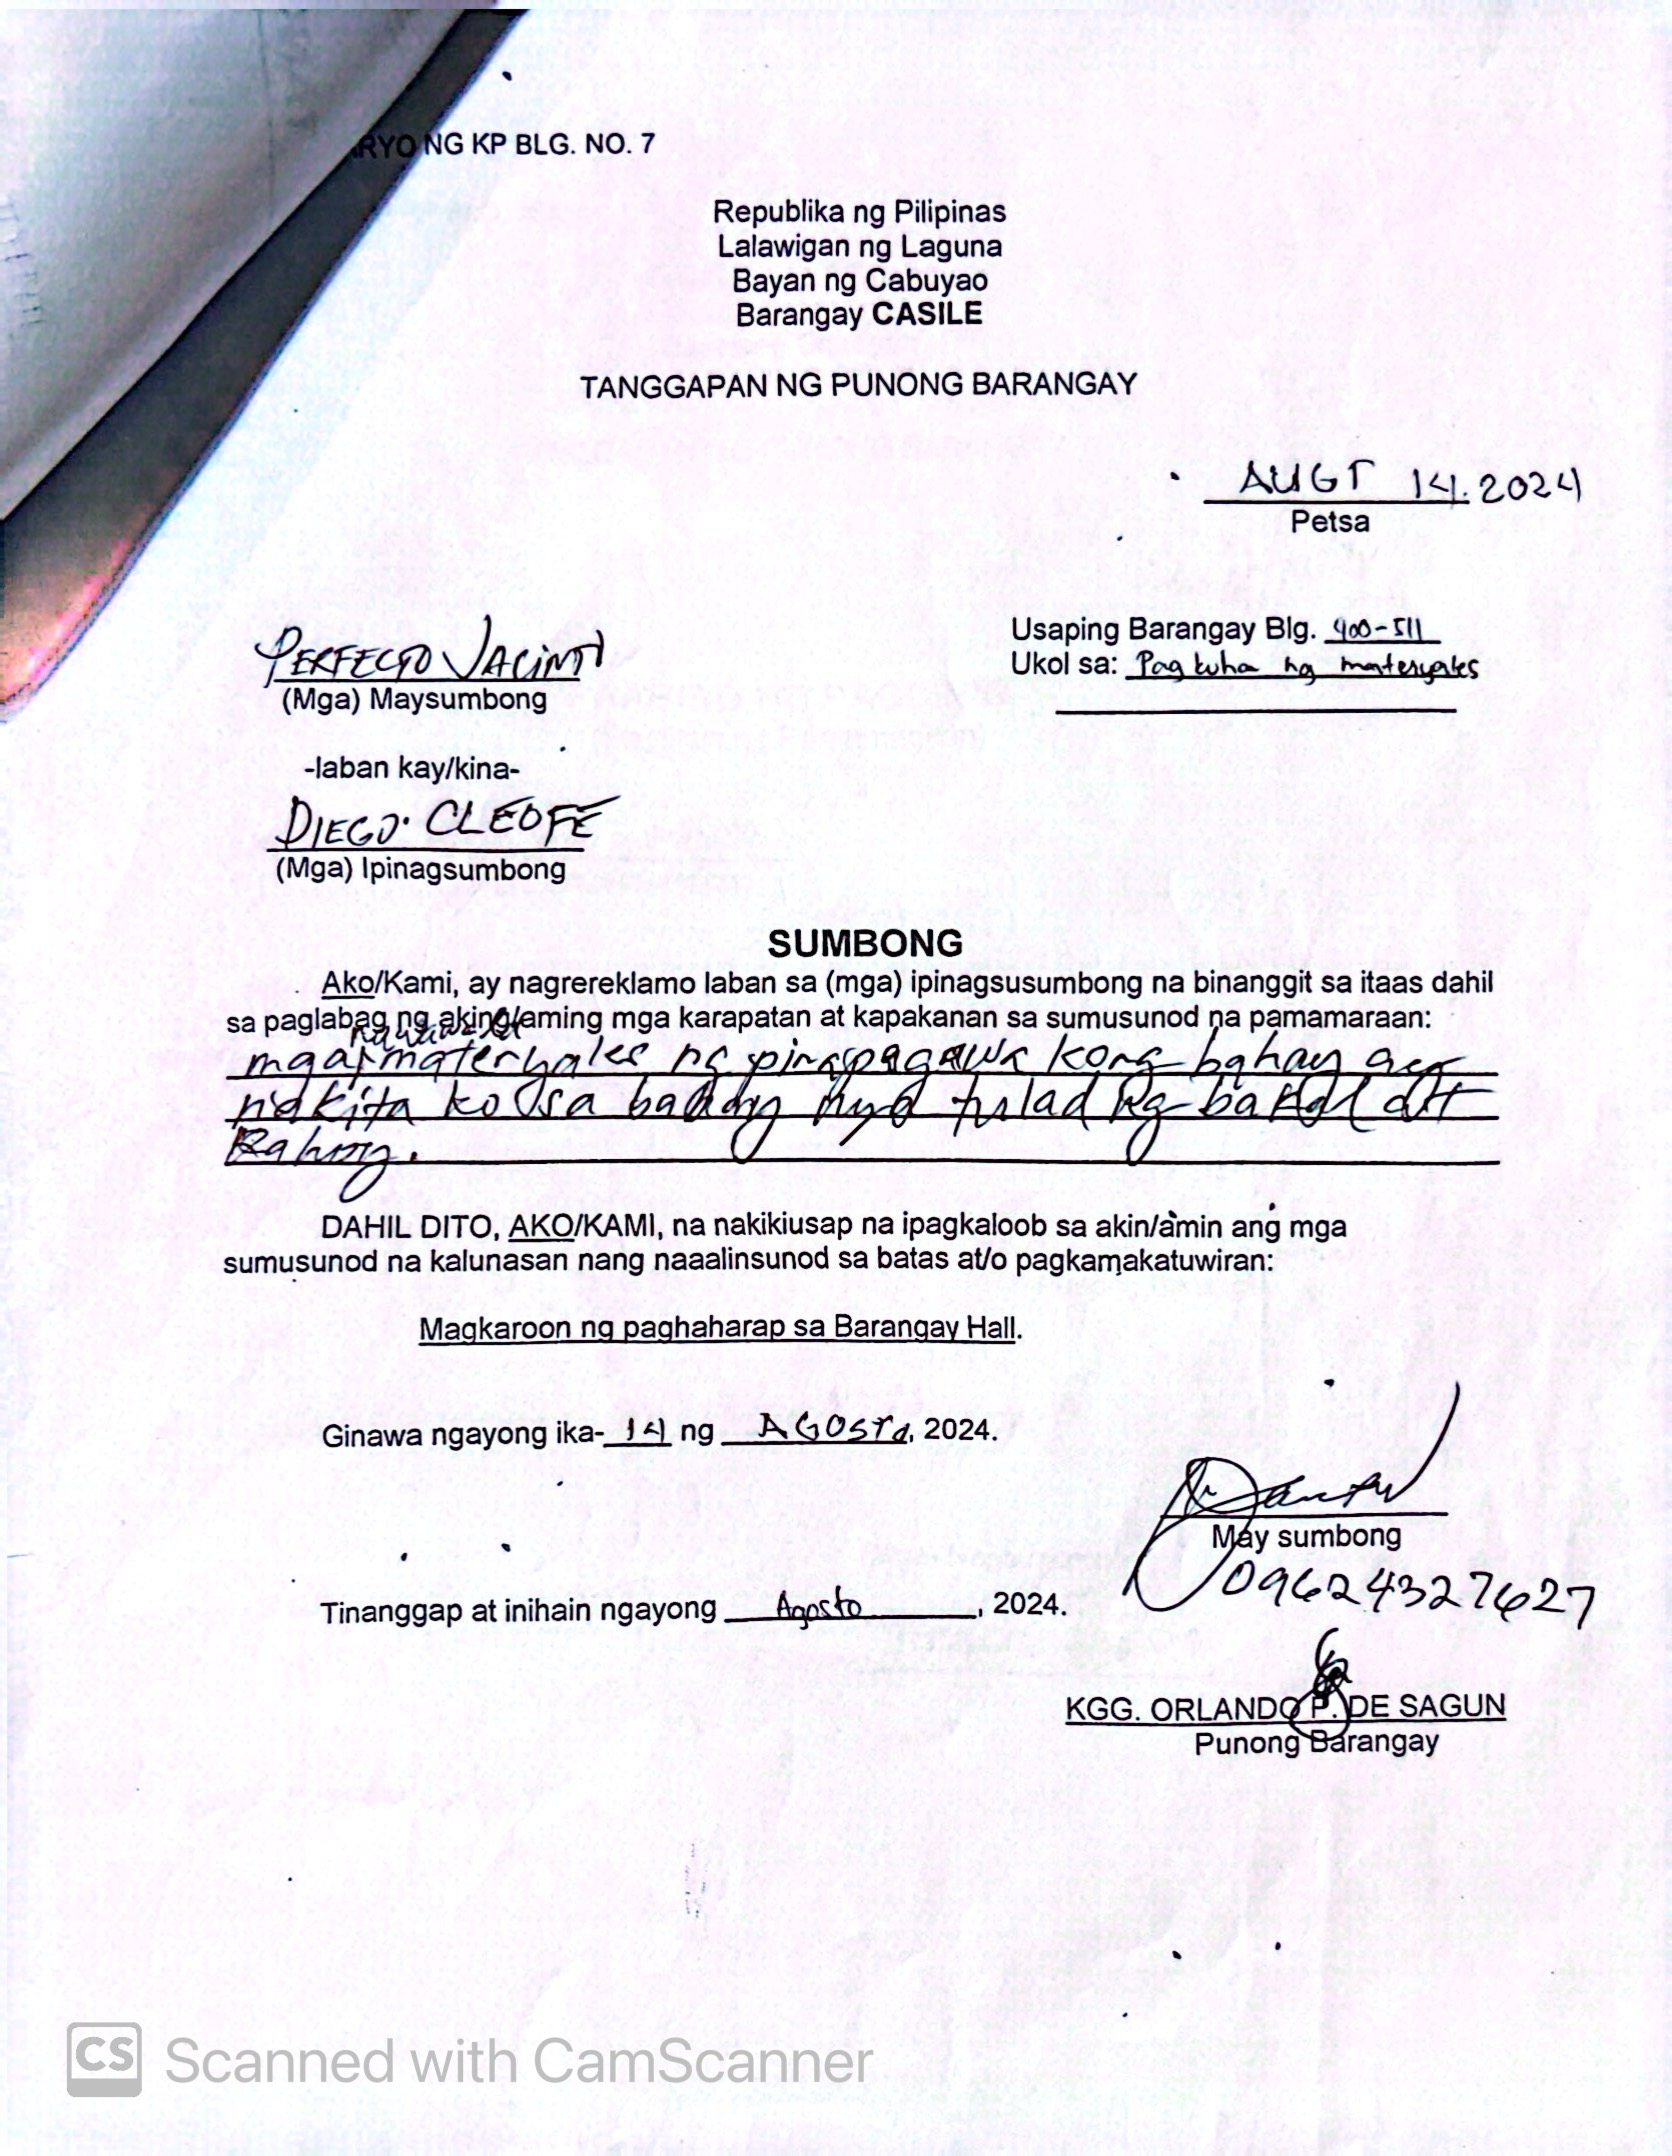 RYO NG KP BLG. NO. 7
Republika ng Pilipinas
Lalawigan ng Laguna
Bayan ng Cabuyao
Barangay CASILE
TANGGAPAN NG PUNONG BARANGAY
AUGT 14. 2024
Petsa
Usaping Barangay Blg. 400-511
Ukol sa: Pag kuha ng materyales
PERFECTO JACINTO
(Mga) Maysumbong
-laban kay/kina-
DIEGO. CLEOFE
(Mga) Ipinagsumbong
SUMBONG
Ako/Kami, ay nagrereklamo laban sa (mga) ipinagsusumbong na binanggit sa itaas dahil
sa paglabag ng aking/aming mga karapatan at kapakanan sa sumusunod na pamamaraan:
nawawala
mga materyales ng pinapagawa kong bahay ay
nakita ko sa bahay nya tulad ng bakal at
Kahoy.
DAHIL DITO, AKO/KAMI, na nakikiusap na ipagkaloob sa akin/amin ang mga
sumusunod na kalunasan nang naaalinsunod sa batas at/o pagkamakatuwiran:
Magkaroon ng paghaharap sa Barangay Hall.
Ginawa ngayong ika- 14 ng AGOSTO, 2024.
May sumbong
09624327627
Tinanggap at inihain ngayong Agosto, 2024.
KGG. ORLANDO P. DE SAGUN
Punong Barangay
CS Scanned with CamScanner